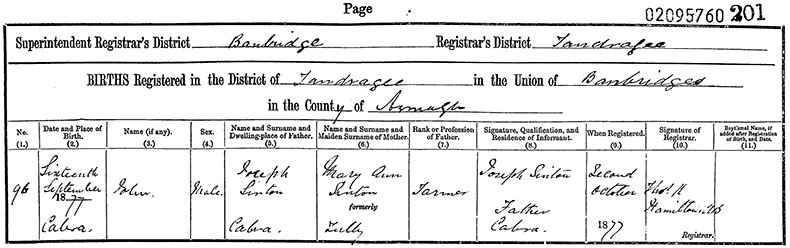 Page 02095760 201
Superintendent Registrar's District Banbridge Registrar's District Tandragee
BIRTHS Registered in the District of Tandragee in the Union of Banbridge
in the County of Armagh
No. (1.) Date and Place of Birth. (2.) Name (if any). (3.) Sex. (4.) Name and Surname and Dwelling-place of Father. (5.) Name and Surname and Maiden Surname of Mother. (6.) Rank or Profession of Father. (7.) Signature, Qualification, and Residence of Informant. (8.) When Registered. (9.) Signature of Registrar. (10.) Baptismal Name, if added after Registration of Birth, and Date. (11.)
96 Sixteenth September 1877 Cabra. John. Male. Joseph Sinton Cabra. Mary Ann Sinton formerly Farmer Joseph Sinton Father Cabra. Second October 1877 Thos. H Hamilton Registrar.